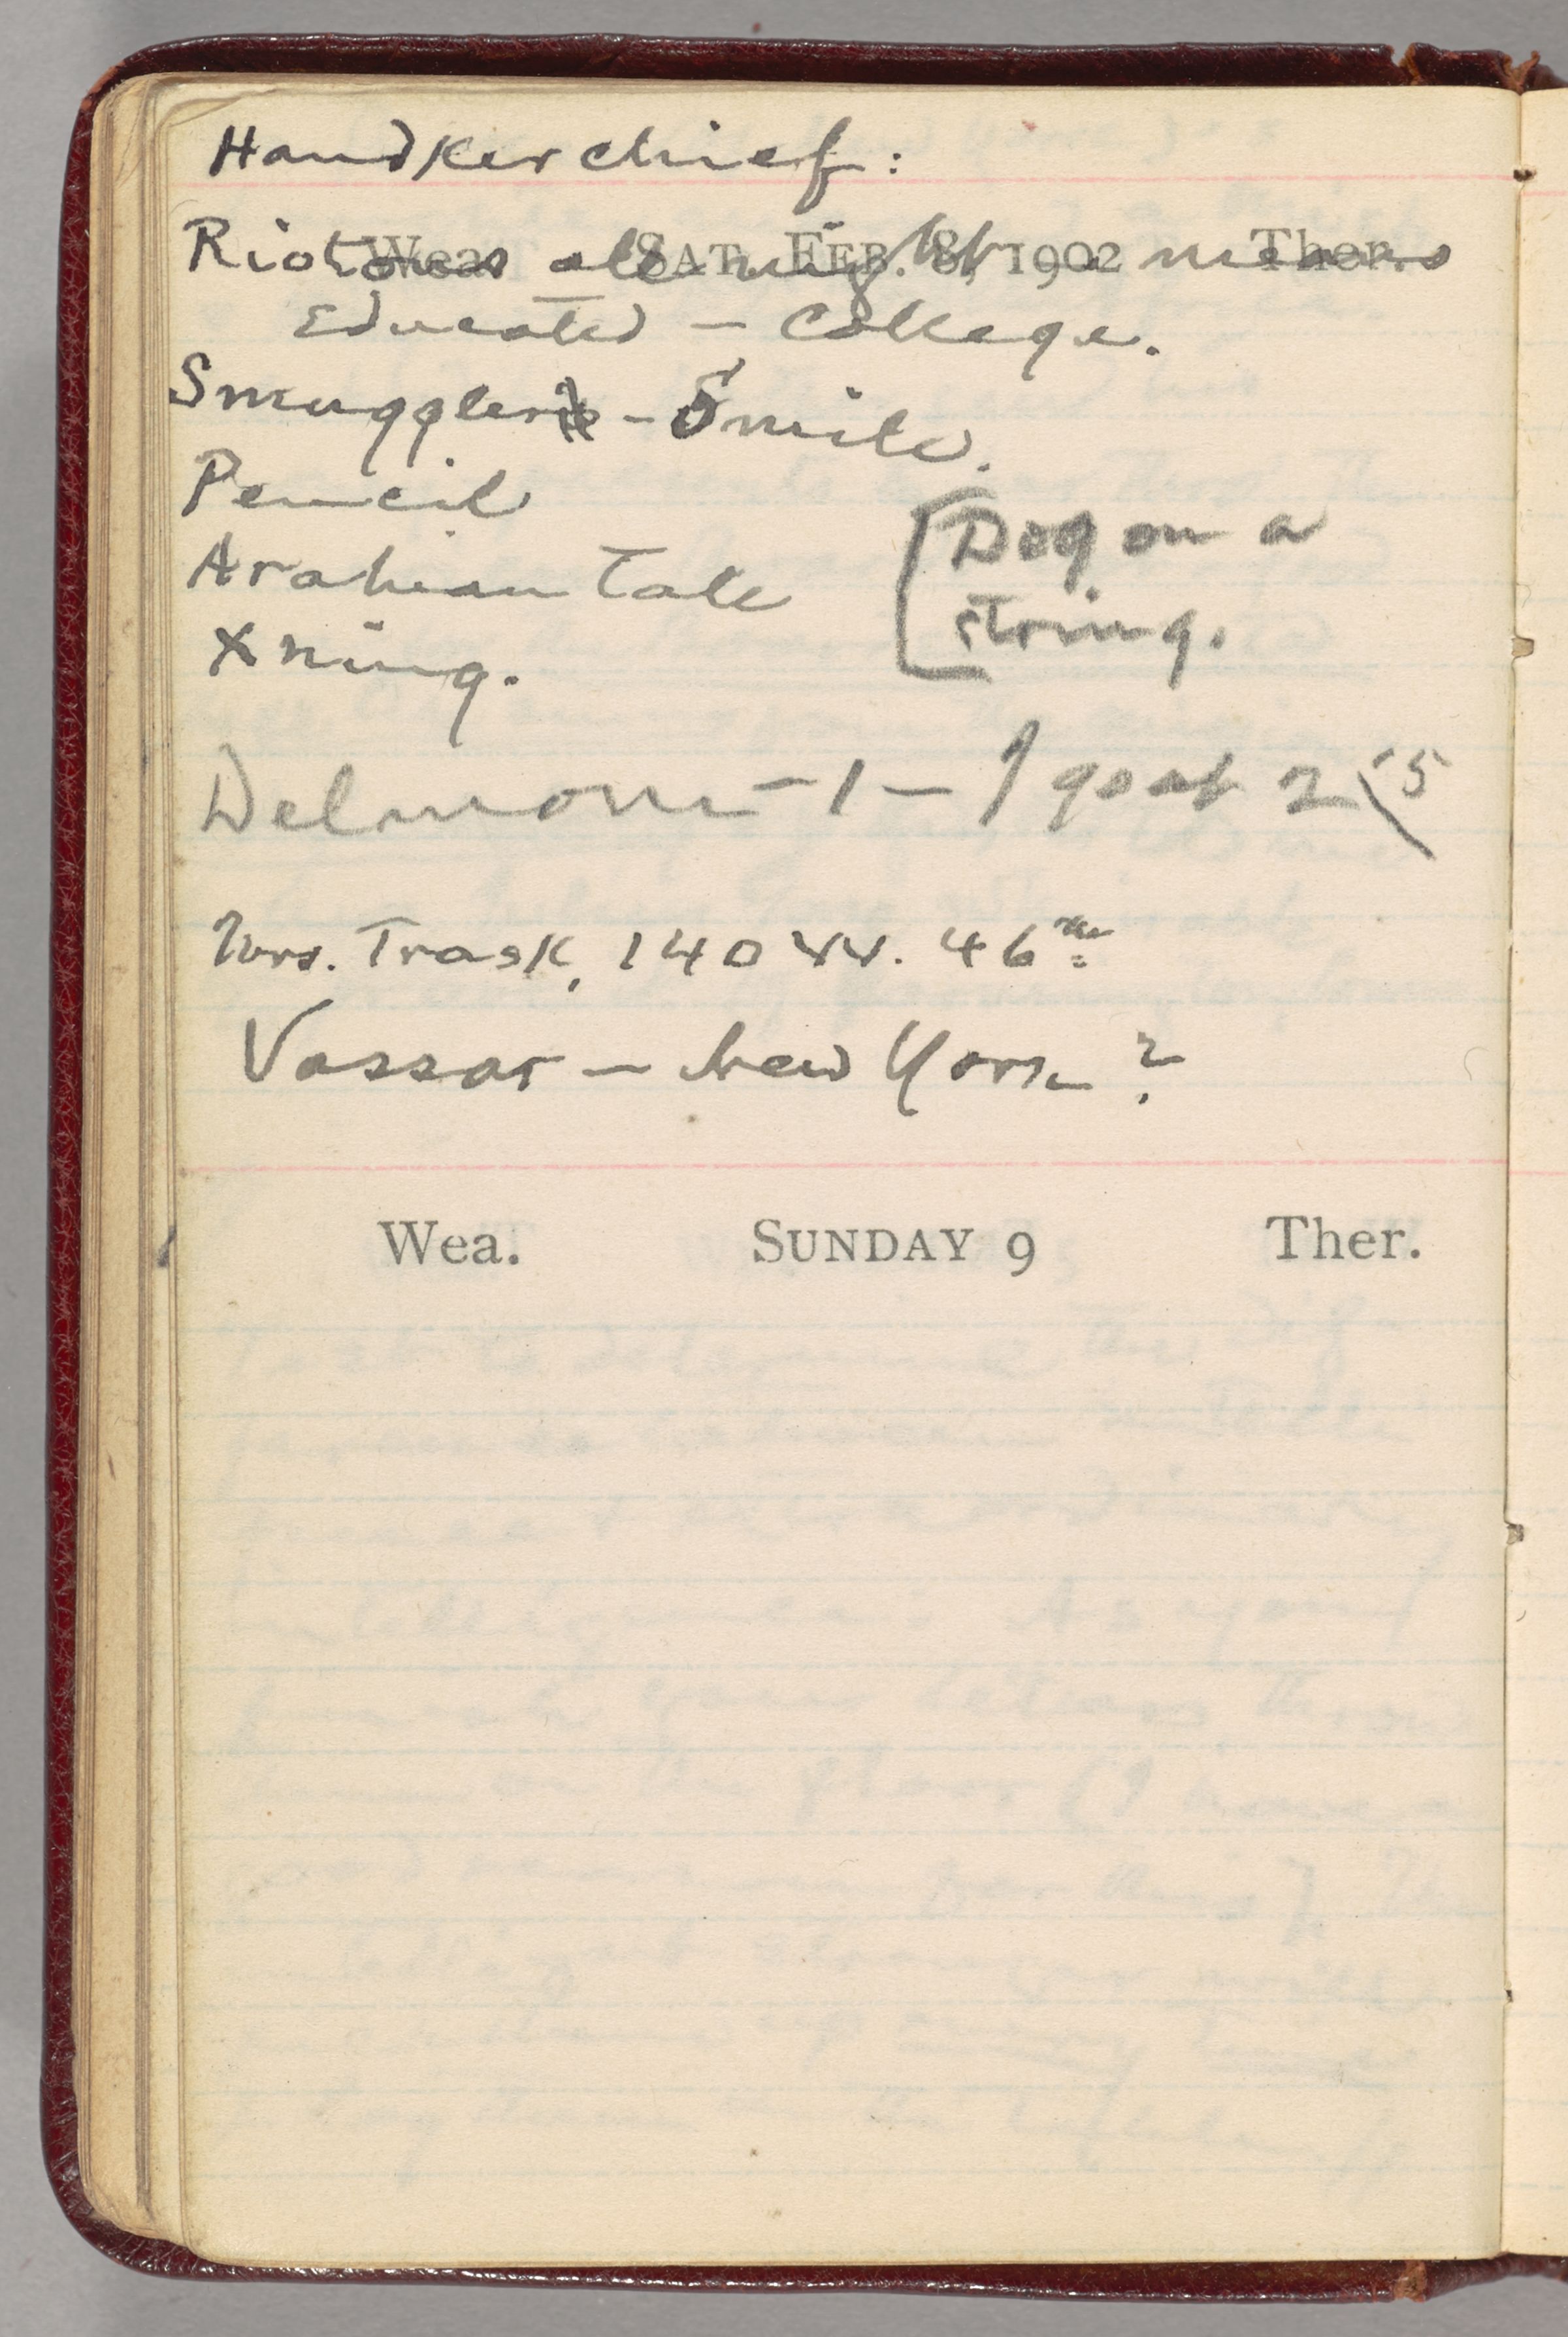 Handkerchief:
Wea. SAT. FEB. 8, 1902 Ther.
Riotous all night means
Educated — College.
Smuggler - Smile.
Pencil
Arabian Tale
[Dog on a
string.
Xning.
Delmoni - 1 — 1 goat 2
Mrs. Trask, 140 W. 46th
Vassar — New York?
Wea. SUNDAY 9 Ther.